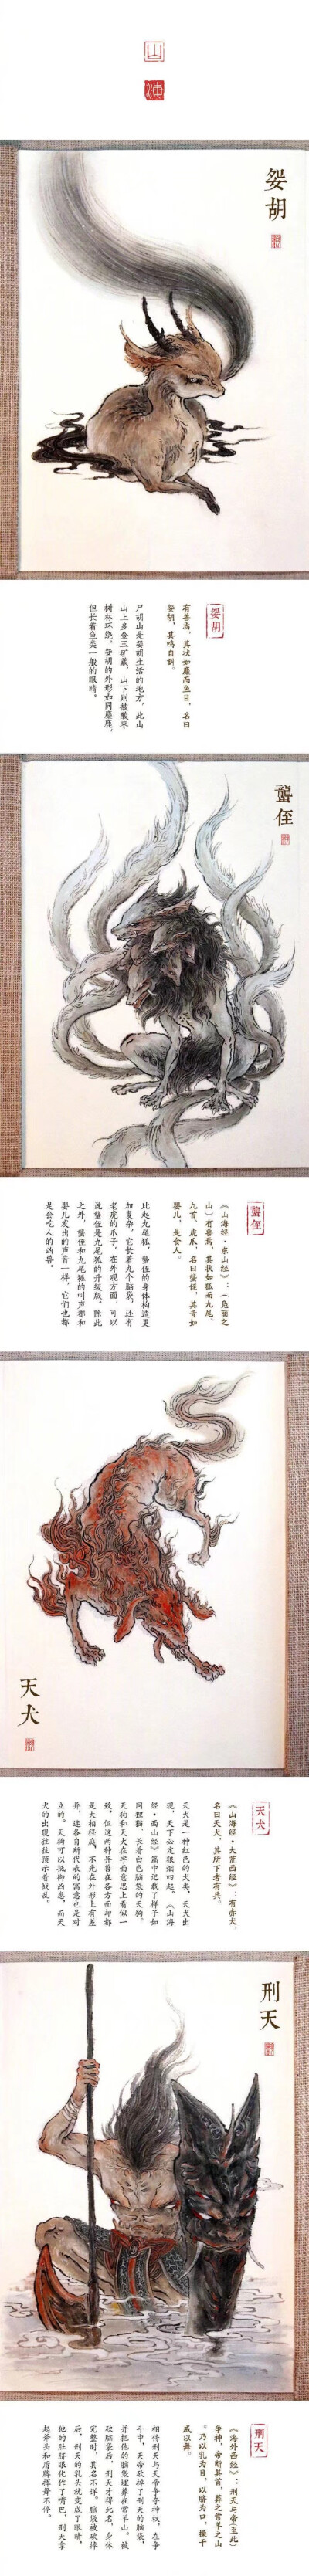 山
海
媻胡
媻胡
有兽焉，其状如麋而鱼目，名曰
媻胡，其鸣自訆。
尸胡山是媻胡生活的地方，此山
山上多金玉矿藏，山下则被酸枣
树林环绕。媻胡的外形如同麋鹿，
但长着鱼类一般的眼睛。
蠪侄
蠪侄
《山海经·东山经》：（凫丽之
山）有兽焉，其状如狐而九尾、
九首、虎爪，名曰蠪侄，其音如
婴儿，是食人。
比起九尾狐，蠪侄的身体构造更
加复杂，它长着九个脑袋，还有
老虎的爪子。在外观方面，可以
说蠪侄是九尾狐的升级版。除此
之外，蠪侄和九尾狐的叫声都和
婴儿发出的声音一样，它们也都
是会吃人的凶兽。
天犬
天犬
《山海经·大荒西经》：有赤犬，
名曰天犬，其所下者有兵。
天犬是一种红色的犬类，天犬出
现，天下必定狼烟四起。《山海
经·西山经》篇中记载了样子如
同狸猫、长着白色脑袋的天狗。
天狗和天犬在字面意思上看似一
致，但这两种异兽在各方面却都
是大相径庭，不光在外形上有差
异，连各自所代表的寓意也是对
立的。天狗可以抵御凶恶，而天
犬的出现往往预示着战乱。
刑天
刑天
《海外西经》：刑天与帝（至此）
争神，帝断其首，葬之常羊之山
。乃以乳为目，以脐为口，操干
戚以舞。
相传刑天与天帝争夺神权，在争
斗中，天帝砍掉了刑天的脑袋，
并把他的脑袋埋葬在常羊山。被
砍脑袋后，刑天才得此名，身体
完整时，其名不详。脑袋被砍掉
后，刑天的乳头就变成了眼睛，
他的肚脐眼化作了嘴巴，刑天拿
起斧头和盾牌挥舞不停。